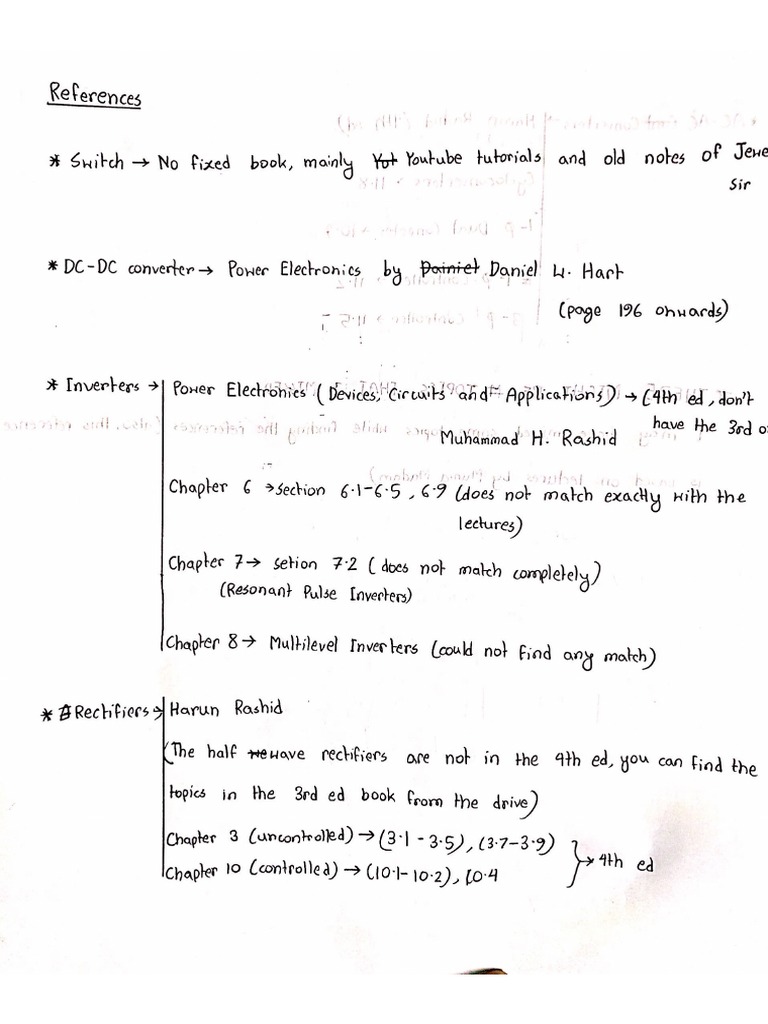 References
* Switch → No fixed book, mainly Yot Youtube tutorials and old notes of Jewe
Sir
* DC-DC converter → Power Electronics by Dainiel Daniel W. Hart
(page 196 onwards)
* Inverters → Power Electronics (Devices, Circuits and Applications) → (4th ed, don't
have the 3rd o
Muhammad H. Rashid
Chapter 6 → section 6.1-6.5, 6.9 (does not match exactly with the
lectures)
Chapter 7 → setion 7.2 (does not match completely)
(Resonant Pulse Inverters)
Chapter 8 → Multilevel Inverters (could not find any match)
* Rectifiers → Harun Rashid
(The half wave rectifiers are not in the 4th ed, you can find the
topics in the 3rd ed book from the drive)
Chapter 3 (uncontrolled) → (3.1 - 3.5), (3.7-3.9)
→ 4th ed
Chapter 10 (controlled) → (10.1- 10.2), 10.4